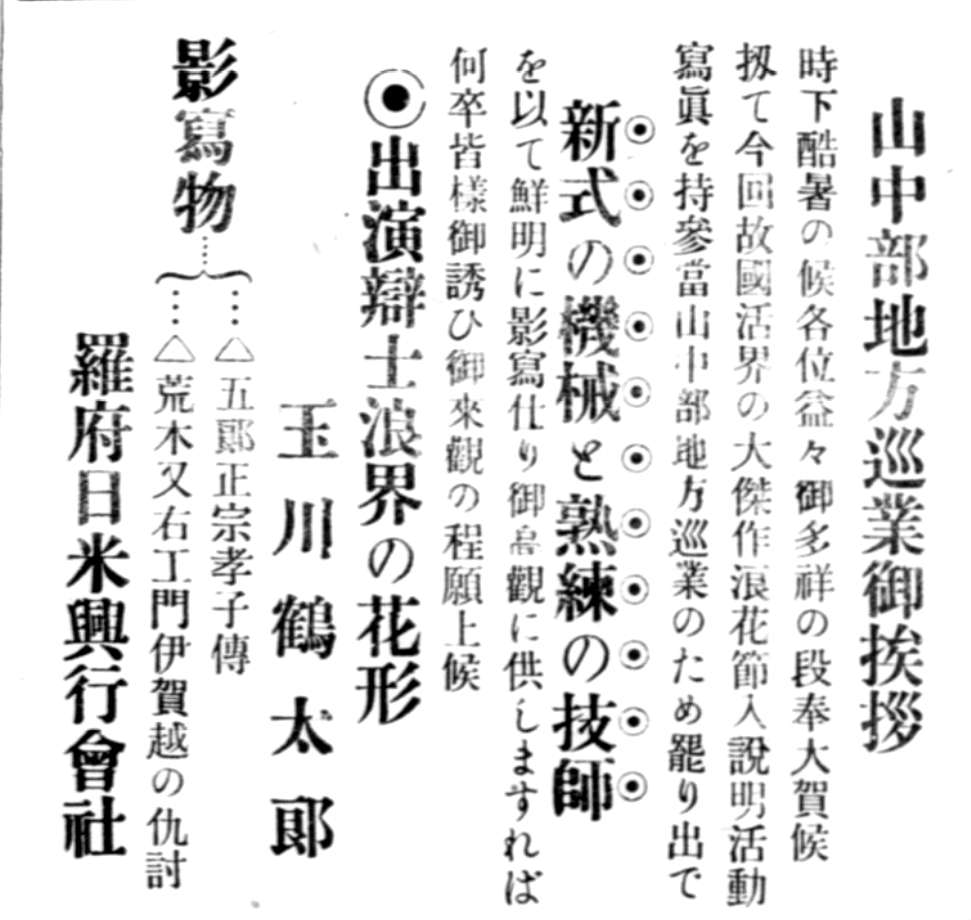 山中部地方巡業御挨拶
時下酷暑の候各位益々御多祥の段奉大賀候
扨て今回故國活界の大傑作浪花節入說明活動
寫眞を持參當山中部地方巡業のため罷り出で
新式の機械と熟練の技師
を以て鮮明に影寫仕り御高觀に供しますれば
何卒皆樣御誘ひ御來觀の程願上候
◉出演辯士浪界の花形
玉川鶴太郞
影寫物
△五郞正宗孝子傳
△荒木又右エ門伊賀越の仇討
羅府日米興行會社